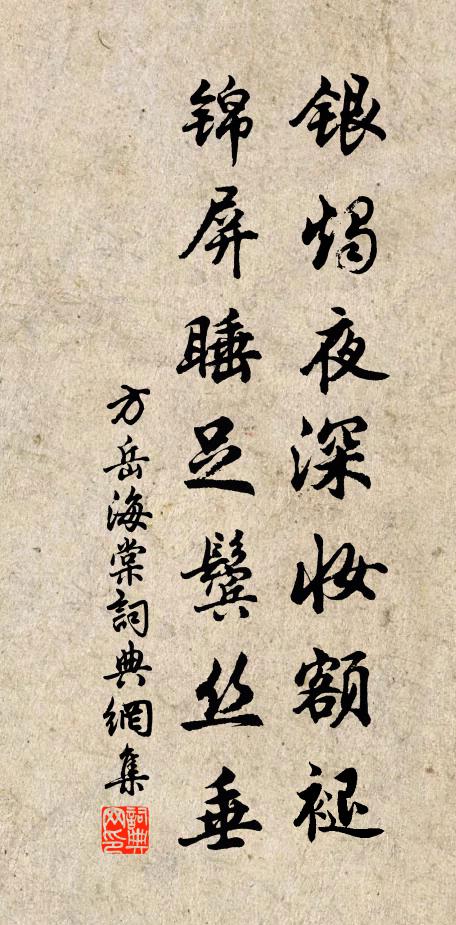 银烛夜深妆额褪
锦屏睡足鬓丝垂
方岳海棠詞典網集
詞典网印